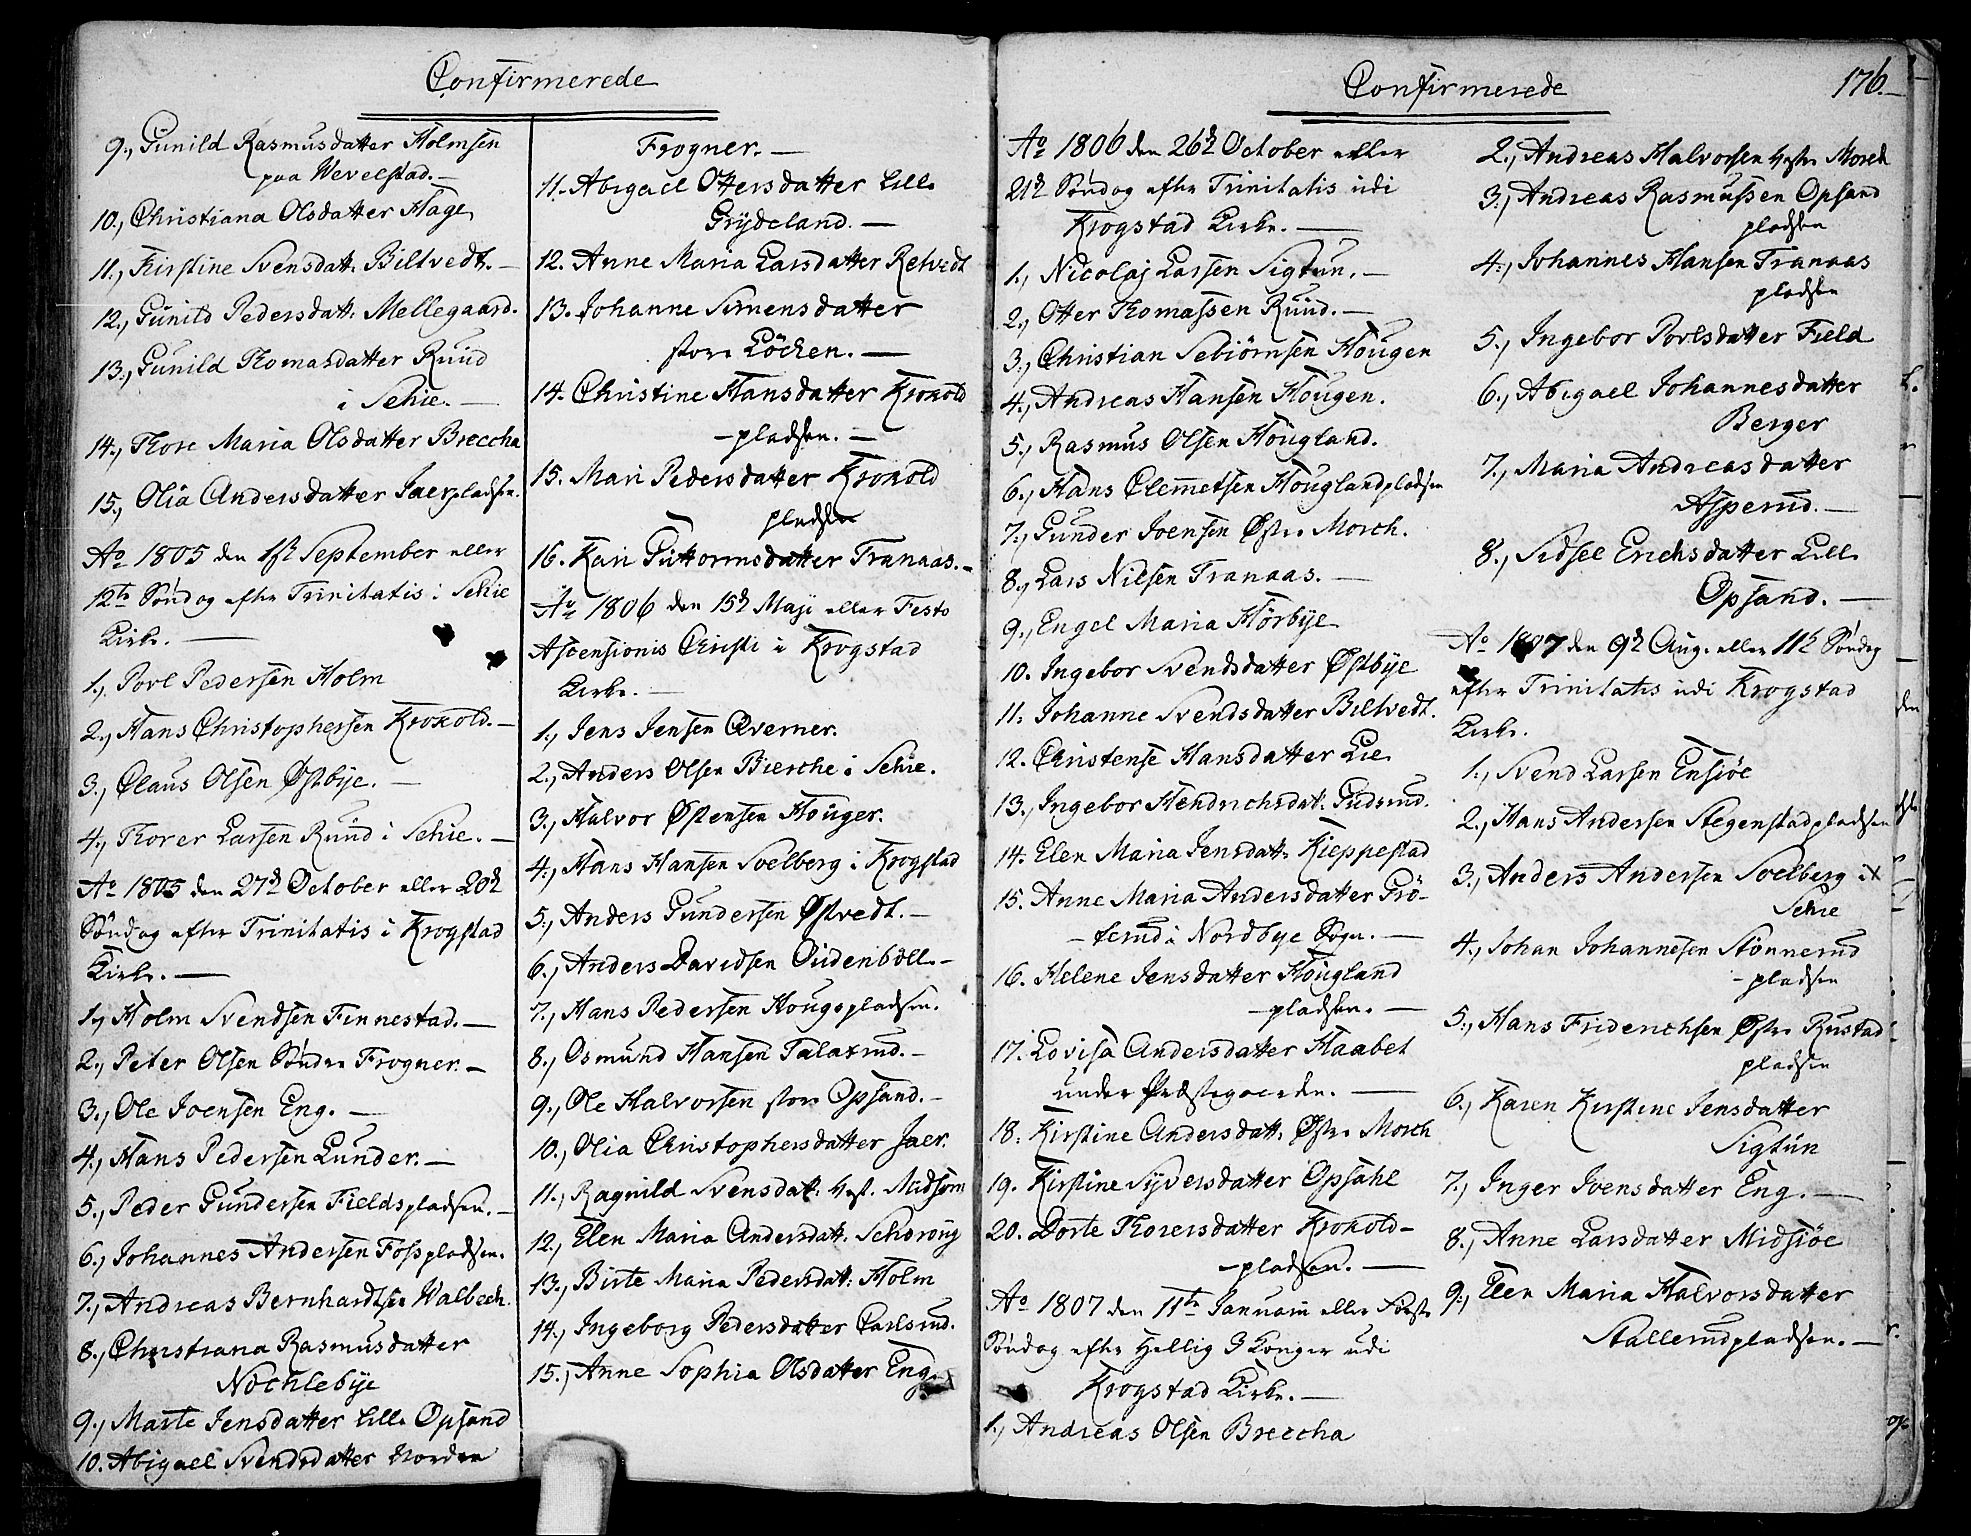 Confirmerede
9., Gunild Rasmusdatter Holmsen
paa Wevelstad. —
10., Christiana Olsdatter Hage
11., Kirstine Svensdatt. Biltvedt. —
12., Gunild Pedersdatt. Mellegaard.
13., Gunild Thomasdatter Ruud
i Schie. —
14., Thore Maria Olsdatter Breccha
15., Olia Andersdatter Jaerpladsen.
Ao 1805 den 1st September eller
12te Søndag efter Trinitatis i Schie
Kirke. —
1., Povl Pedersen Holm
2., Hans Christophersen Krokold. —
3., Claus Olsen Østbye. —
4., Thorer Larsen Ruud i Schie. —
Ao 1805 den 27d October eller 20d
Søndag efter Trinitatis i Krogstad
Kirke. —
1., Holm Svendsen Finnestad. —
2., Peter Olsen Søndre Frogner. —
3., Ole Joensen Eng. —
4., Hans Pedersen Lunder. —
5., Peder Gundersen Fieldspladsen. —
6., Johannes Andersen Fosspladsen.
7., Andreas Bernhardtsen Walbech.
8., Christiana Rasmusdatter
Nochlebye
9., Marte Jensdatter Lille Opsand
10. Abigael Svendsdatter Nordre
Frogner. —
11. Abigael Ottersdatter Lille
Grydeland. —
12. Anne Maria Larsdatter Retvedt
13. Johanne Simensdatter
store Löcken. —
14. Christine Hansdatter Krokold
— pladsen. —
15. Mari Pedersdatter Krokold
pladsen
16. Kari Guttormsdatter Tranaas. —
Ao 1806 den 15d Maji eller Festo
Ascensionis Christi i Krogstad
Kirke. —
1., Jens Jensen Qverner.
2., Anders Olsen Bierche i Schie.
3., Halvor Østensen Houger.
4., Hans Hansen Soelberg i Krogstad
5., Anders Gundersen Østvedt. —
6., Anders Davidsen Oudenböll. —
7., Hans Pedersen Hougspladsen.
8., Osmund Hansen Talaxrud. —
9., Ole Halvorsen store Opsand. —
10., Olia Christophersdatter Jaer.
11., Ragnild Svensdatt. vest. Midsom
12., Elen Maria Andersdatt. Schoroug
13., Birte Maria Pedersdatt. Holm
14., Ingeborg Pedersdatter Carlsrud.
15., Anne Sophia Olsdatter Eng.
Confirmerede
176. —
Ao 1806 den 26d October eller
21d Søndag efter Trinitatis udi
Krogstad Kirke. —
1., Nicolaj Larsen Sigtun. —
2., Otter Thomassen Ruud. —
3., Christian Sebiörnsen Hougen
4., Andreas Hansen Hougen.
5., Rasmus Olsen Hougland.
6., Hans Clemmetsen Houglandpladsen
7., Gunder Joensen Østre Morch.
8., Lars Nilsen Tranaas. —
9., Engel Maria Hörbye
10. Ingebor Svendsdatter Østbye
11. Johanne Svendsdatter Biltvedt.
12. Christense Hansdatter Lie
13., Ingebor Hendrichsdat. Gudsrud.
14. Elen Maria Jensdatt. Kieppestad
15. Anne Maria Andersdatter Grö-
— terud i Nordbye Sogn. —
16. Helene Jensdatter Hougland
— pladsen. —
17. Lovisa Andersdatter Haabet
under Præstegaarden. —
18. Kirstine Andersdatt. Østre Morch
19. Kirstine Syversdatter Opsahl
20. Dorte Thorersdatter Krokold —
— pladsen. —
Ao 1807 den 11te Januarii eller Første
Søndag efter Hellig 3 Konger udi
Krogstad Kirke. —
1., Andreas Olsen Breccha
2., Andreas Halvorsen vestre Morch
3., Andreas Rasmussen Opsand
pladsen
4., Johannes Hansen Tranaas
pladsen
5., Ingebor Povlsdatter Field
6., Abigael Johannesdatter
Berger
7., Maria Andreasdatter
Asperud. —
8., Sidsel Erichsdatter Lille
Opsand. —
Ao 1807 den 9d Aug. eller 11te Søndag
efter Trinitatis udi Krogstad
Kirke.
1., Svend Larsen Ensiöe
2., Hans Andersen Stegenstadpladsen
3., Anders Andersen Soelberg i
Schie
4., Johan Johannesen Stönnerud
— pladsen
5., Hans Friderichsen Østre Rustad
pladsen
6., Karen Kirstine Jensdatter
Sigtun
7., Inger Ivensdatter Eng. —
8., Anne Larsdatter Midsiöe
9., Elen Maria Halvorsdatter
Stallerudpladsen. —